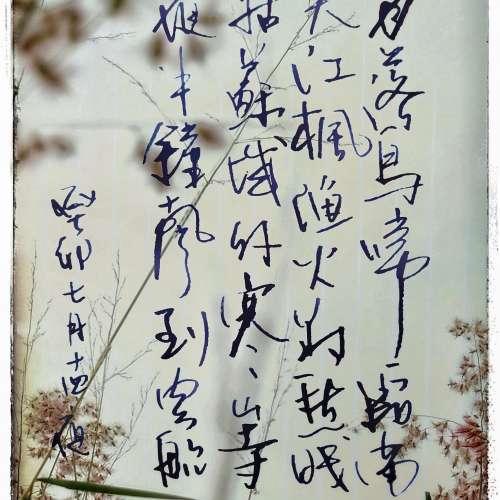 月落烏啼霜满
天江楓漁火对愁眠
姑蘇城外寒山寺
夜半鐘聲到客船
癸卯七月十四